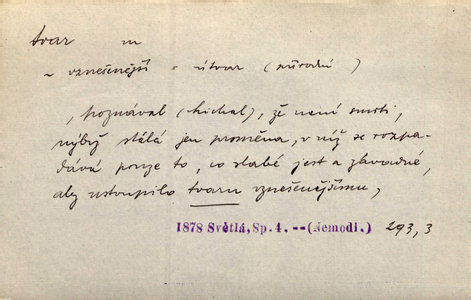 tvar m
~ vznešenější = útvar (přírodní)
„poznával (Michal), že není smrti,
nýbrž stálá jen proměna, v níž se rozpa-
dává pouze to, co slabé jest a závadné,
aby ustoupilo tvaru vznešenějšímu“
1878 Světlá, Sp. 4. -- (Nemodl.) 293,3